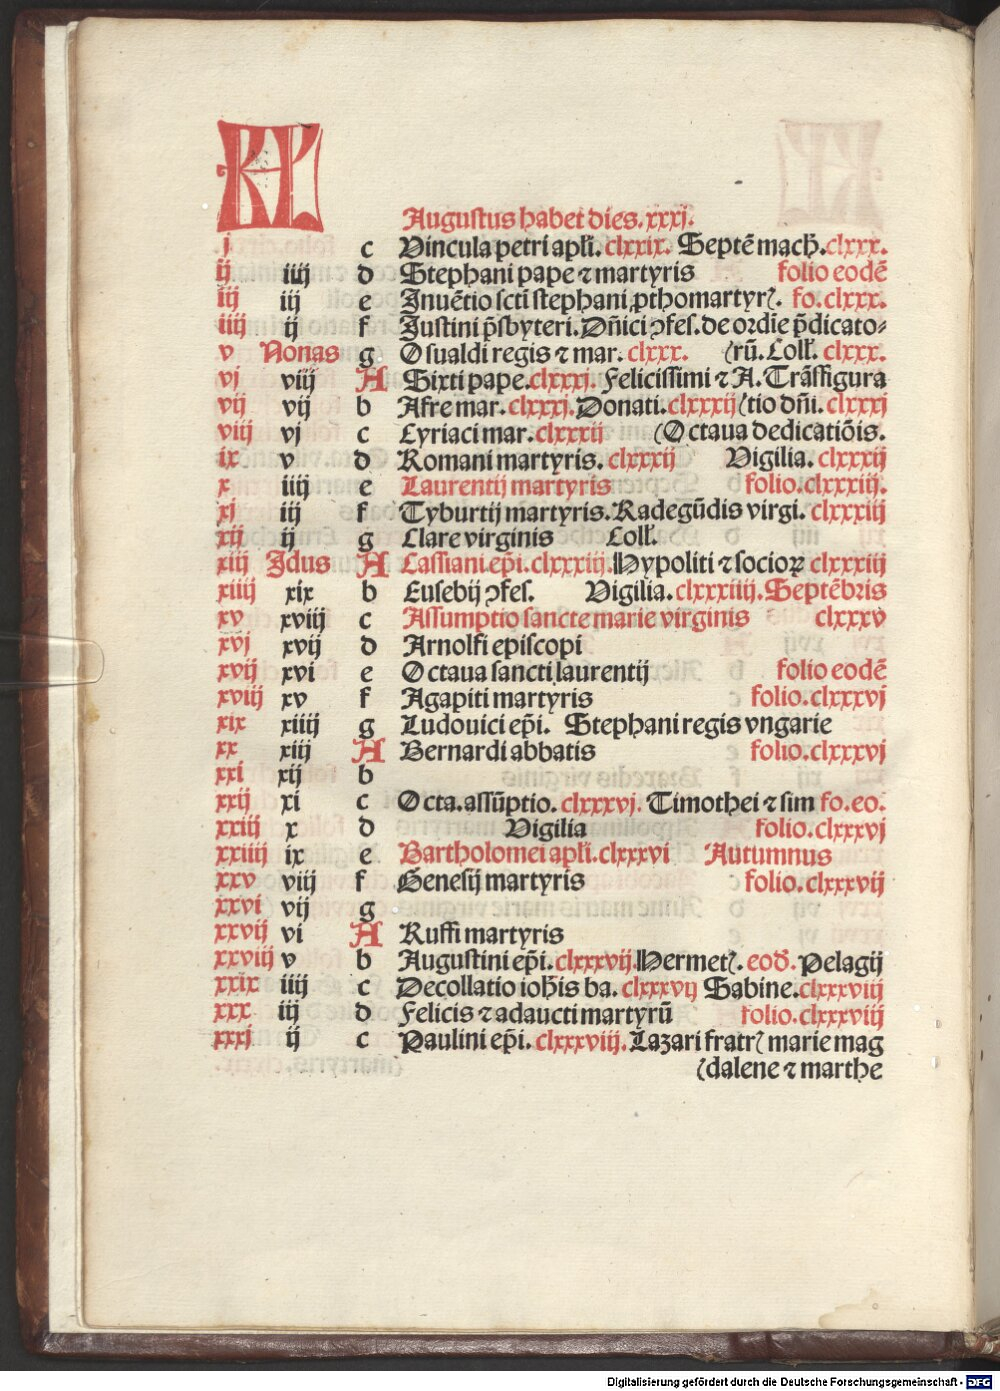 KL
Augustus habet dies. xxxj.
j c Vincula petri apli. clxxix. Septē mach. clxxx.
ij iiij d Stephani pape ⁊ martyris folio eodē
iij iij e Inuētio scti stephani ꝓthomartyrꝭ. fo. clxxx.
iiij ij f Iustini p̄sbyteri. Dn̄ici ꝯfes. de ordīe p̄dicato⸗
v Nonas g Osualdi regis ⁊ mar. clxxx. (rū. Coll. clxxx.
vj viij A Sixti pape. clxxxj. Felicissimi ⁊ A. Trāsfigura
vij vij b Afre mar. clxxxj. Donati. clxxxij (tio dn̄i. clxxxj
viij vj c Cyriaci mar. clxxxij (Octaua dedicatiōis.
ix v d Romani martyris. clxxxij Vigilia. clxxxij
x iiij e Laurentij martyris folio. clxxxiij.
xj iij f Tyburtij martyris. Radegūdis virgi. clxxxiij
xij ij g Clare virginis Coll.
xiij Idus A Cassiani ep̄i. clxxxiij. Hypoliti ⁊ socioꝝ clxxxiij
xiiij xix b Eusebij ꝯfes. Vigilia. clxxxiiij. Septēbris
xv xviij c Assumptio sancte marie virginis clxxxv
xvj xvij d Arnolfi episcopi
xvij xvi e Octaua sancti laurentij folio eodē
xviij xv f Agapiti martyris folio. clxxxvj
xix xiiij g Ludouici ep̄i. Stephani regis vngarie
xx xiij A Bernardi abbatis folio. clxxxvj
xxi xij b
xxij xi c Octa. assūptio. clxxxvj. Timothei ⁊ sim fo. eo.
xxiij x d Vigilia folio. clxxxvj
xxiiij ix e Bartholomei apli. clxxxvi Autumnus
xxv viij f Genesij martyris folio. clxxxvij
xxvi vij g
xxvij vi A Ruffi martyris
xxviij v b Augustini ep̄i. clxxxvij. Hermetꝭ. eod. Pelagij
xxix iiij c Decollatio ioh̄is ba. clxxxvij Sabine. clxxxviij
xxx iij d Felicis ⁊ adaucti martyrū folio. clxxxviij
xxxj ij c Paulini ep̄i. clxxxviij. Lazari fratrꝭ marie mag
(dalene ⁊ marthe
Digitalisierung gefördert durch die Deutsche Forschungsgemeinschaft - DFG